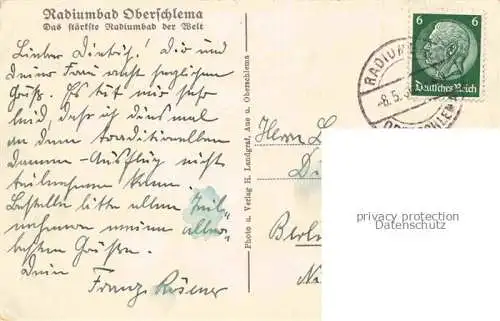 Radiumbad Oberschlema
Das stärkste Radiumbad der Welt
Lieber Dietrich! Dir und
Deiner Frau recht herzlichen
Gruß. Es tut mir sehr
leid, daß ich dies mal
an dem traditionellen
Damen-Ausflug nicht
teilnehmen kann.
Bestelle bitte allen Teil-
nehmern meine aller-
besten Grüße.
Dein
Franz Rösner
Photo u. Verlag H. Landgraf, Aue u. Oberschlema
6 6
Deutsches Reich
RADIUM
-8.5.
OBERSCHLEMA
Herrn L
Di
Berlin
privacy protection
Datenschutz